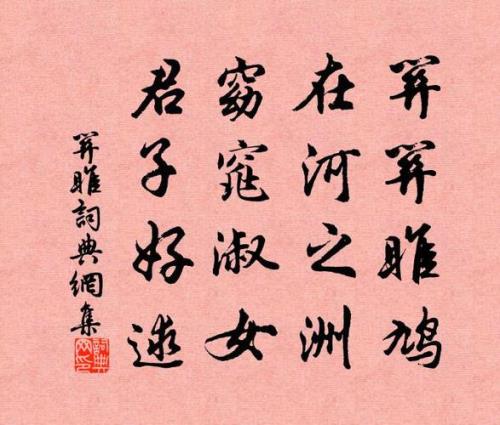 關關雎鳩
在河之洲
窈窕淑女
君子好逑
關雎詞典網集